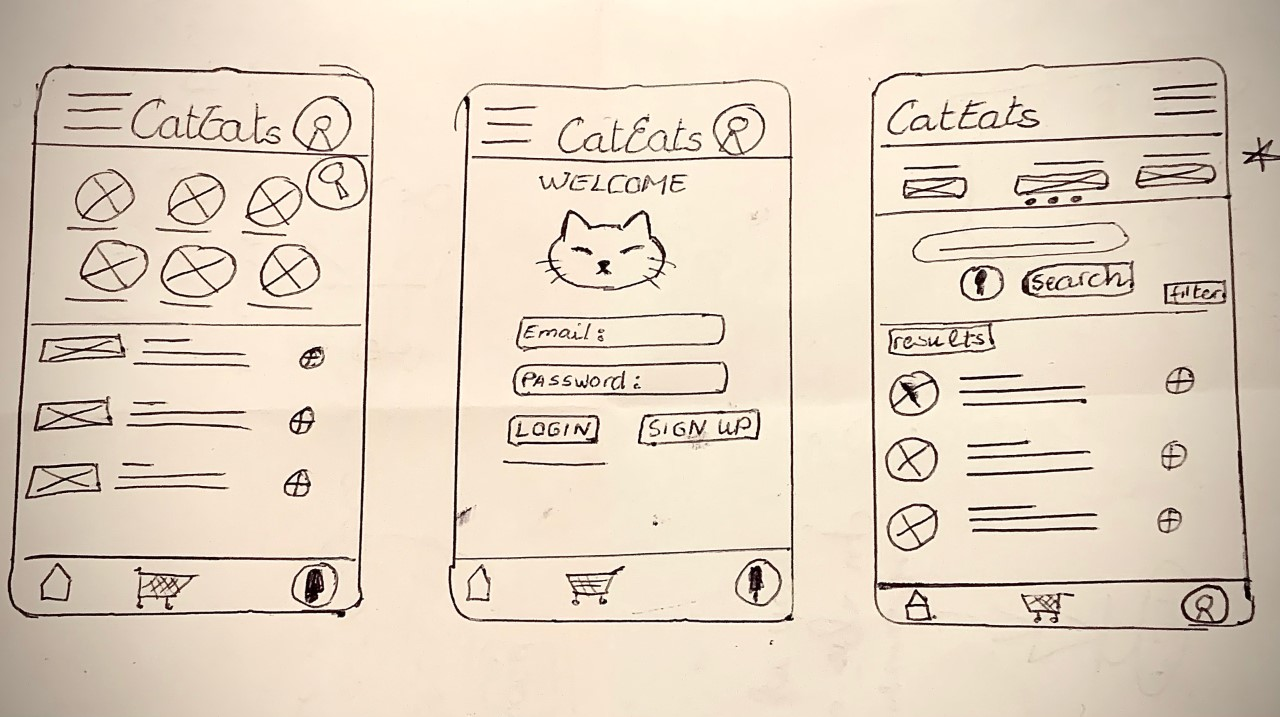 CatEats
CatEats
WELCOME
Email:
PASSWORD:
LOGIN
SIGN UP
CatEats
search
filter
results